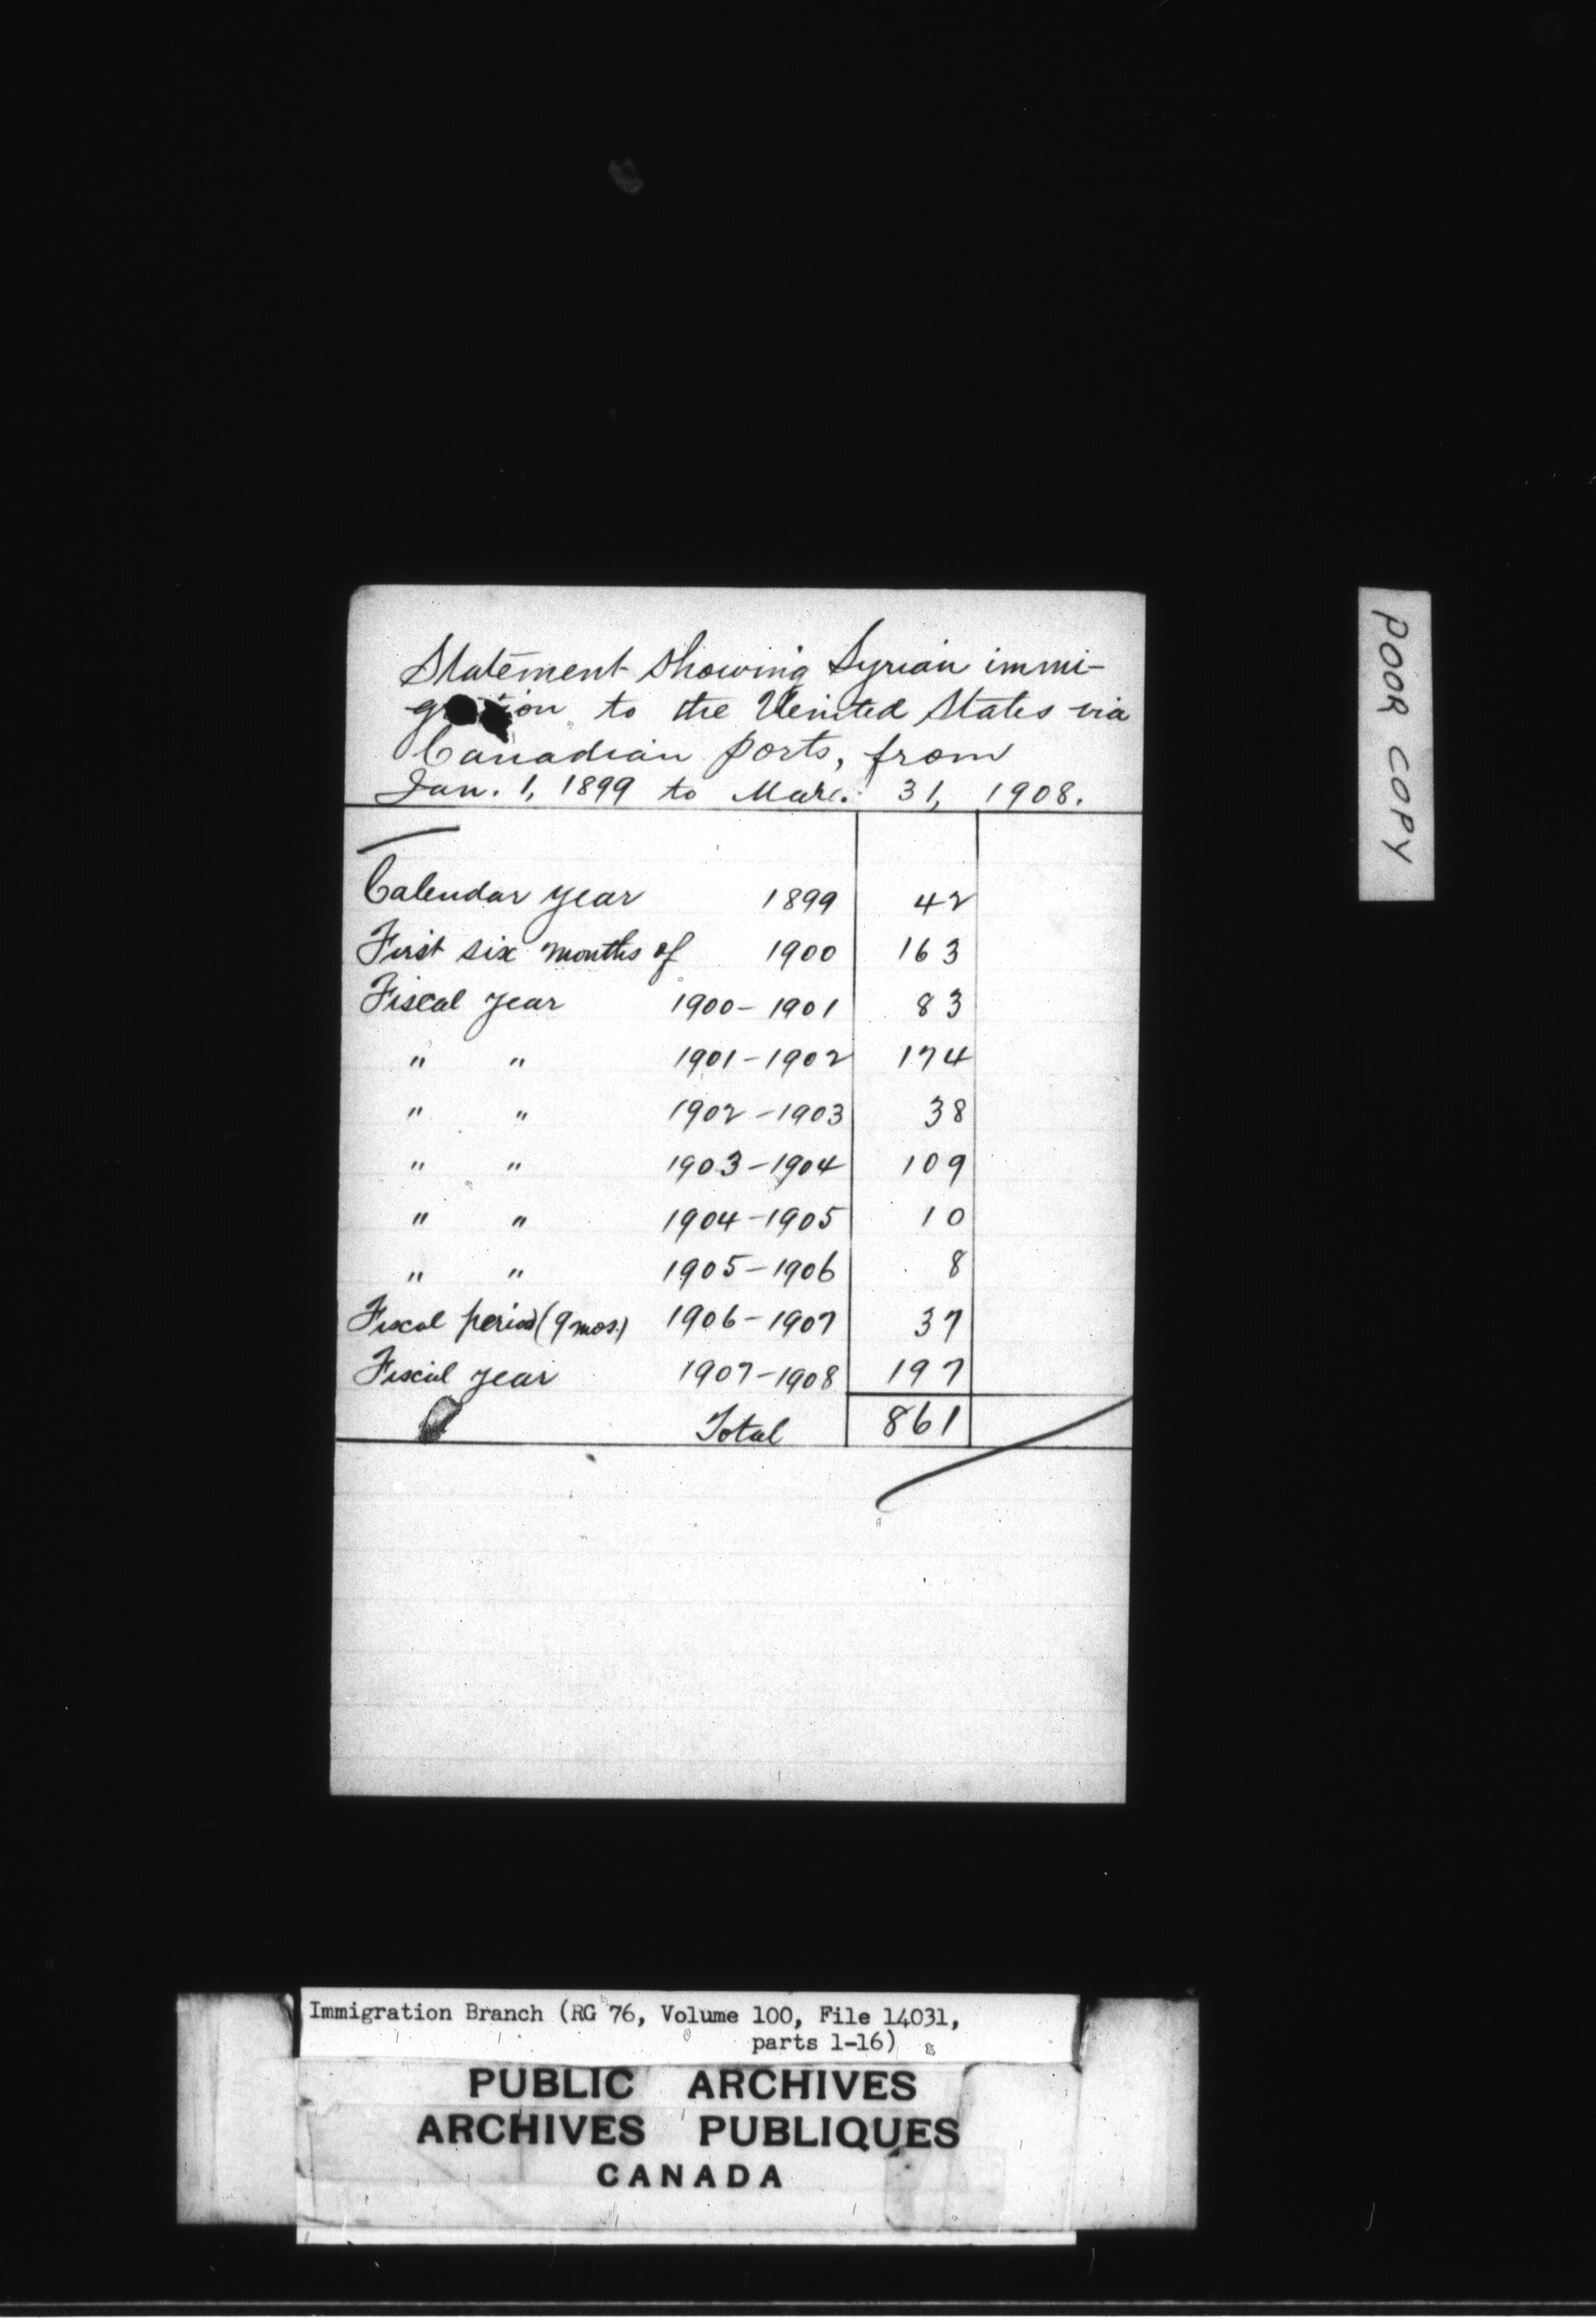 Statement showing Syrian immi-
gration to the United States via
Canadian ports, from
Jan. 1, 1899 to Mar. 31, 1908.
Calendar year 1899 42
First six months of 1900 163
Fiscal year 1900-1901 83
" " 1901-1902 174
" " 1902-1903 38
" " 1903-1904 109
" " 1904-1905 10
" " 1905-1906 8
Fiscal period (9 mos.) 1906-1907 37
Fiscal year 1907-1908 197
Total 861
POOR COPY
Immigration Branch (RG 76, Volume 100, File 14031,
parts 1-16)
PUBLIC ARCHIVES
ARCHIVES PUBLIQUES
CANADA